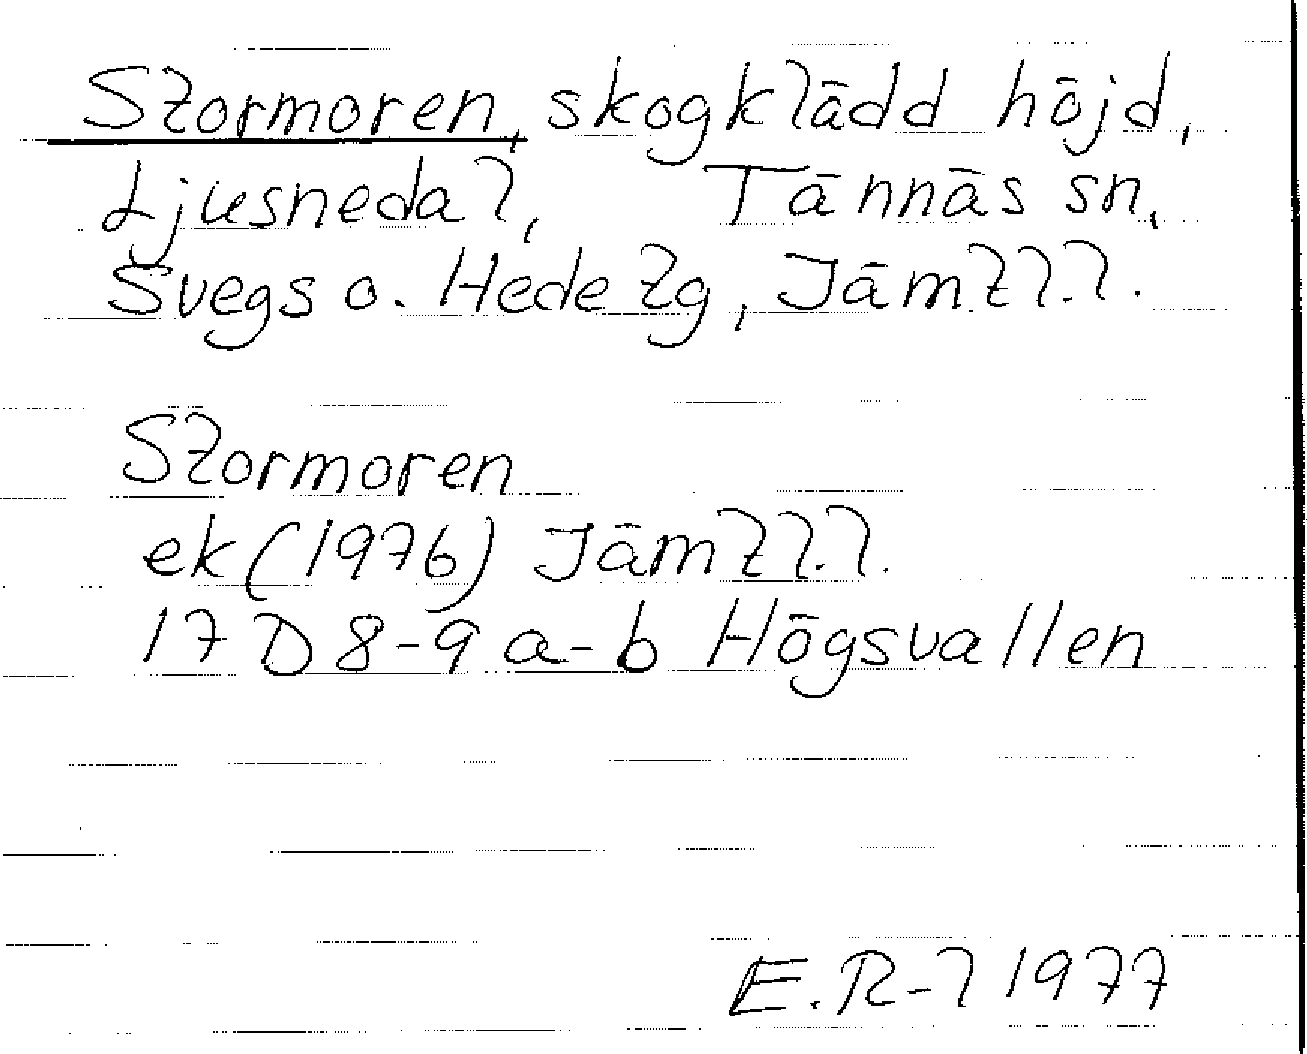 Stormoren, skogklädd höjd,
Ljusnedal, Tännäs sn,
Svegs o. Hede tg, Jämtl.l.
Stormoren
ek (1976) Jämtl.l.
17 D 8-9 a-b Högsvallen
E.R-l 1977